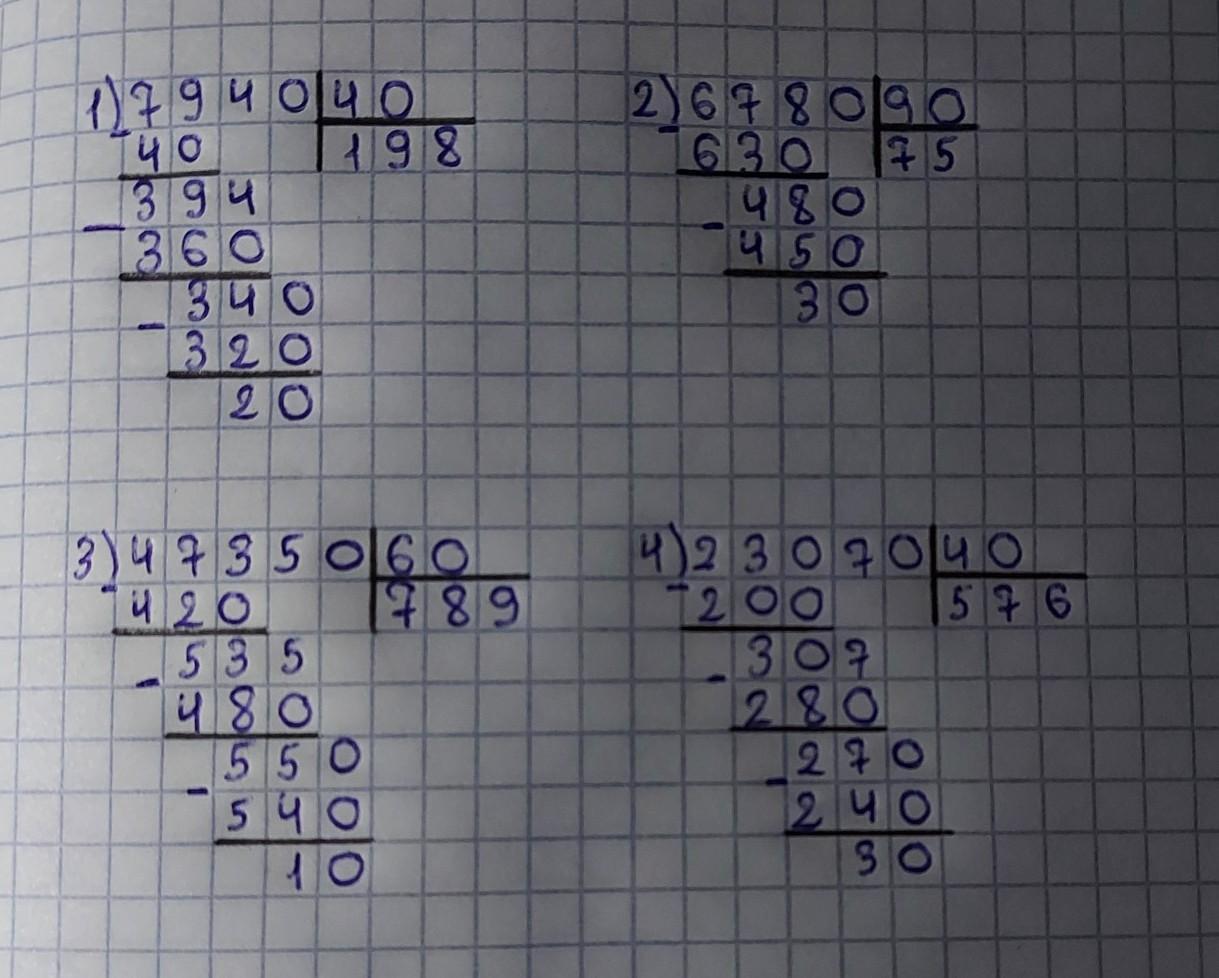 1) 7940 | 40
- 40 | 198
394
- 360
340
- 320
20
2) 6780 | 90
- 630 | 75
480
- 450
30
3) 47350 | 60
- 420 | 789
535
- 480
550
- 540
10
4) 23070 | 40
- 200 | 576
307
- 280
270
- 240
30